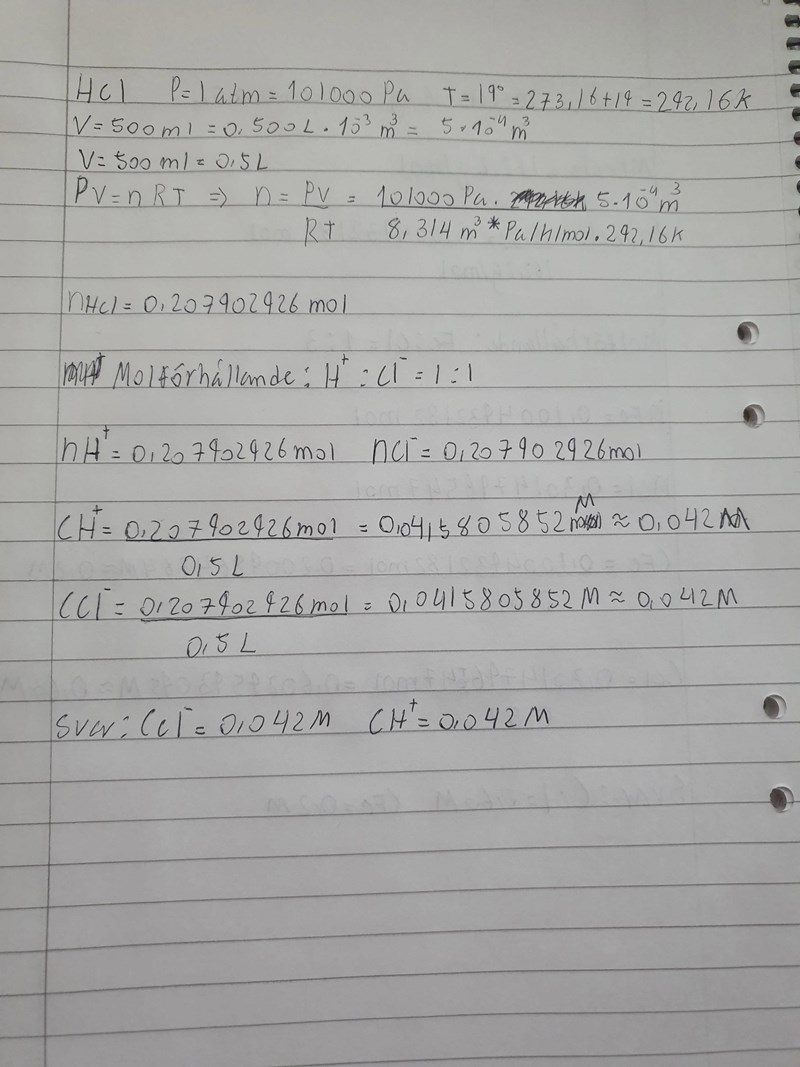 HCl P=1 atm = 101000 Pa T=19° = 273,16+19 = 292,16K
V=500ml = 0,500L · 10⁻³ m³ = 5·10⁻⁴ m³
V=500 ml = 0,5L
PV=nRT ⇒ n = PV = 101000 Pa · 5·10⁻⁴ m³
RT 8,314 m³*Pa/h/mol · 292,16K
nHCl = 0,207902926 mol
Molförhållande: H⁺ : Cl⁻ = 1 : 1
nH⁺ = 0,207902926 mol nCl⁻ = 0,207902926mol
CH⁺ = 0,207902926 mol = 0,0415805852 M ≈ 0,042 M
0,5 L
CCl⁻ = 0,207902926 mol = 0,0415805852 M ≈ 0,042M
0,5 L
Svar: CCl⁻ = 0,042M CH⁺ = 0,042M